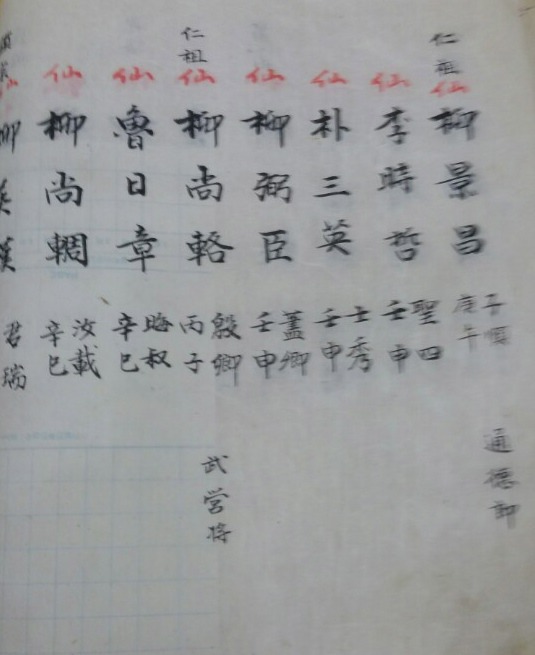 仁祖
仙
柳景昌
子順
庚午
通德郎
仙
李時哲
聖四
壬申
仙
朴三英
士秀
壬申
仙
柳弼臣
蓋卿
壬申
仁祖
仙
柳尚輅
殷卿
丙子
武営将
仙
魯日章
晦叔
辛巳
仙
柳尚輖
汝載
辛巳
仙
柳
英
君瑞